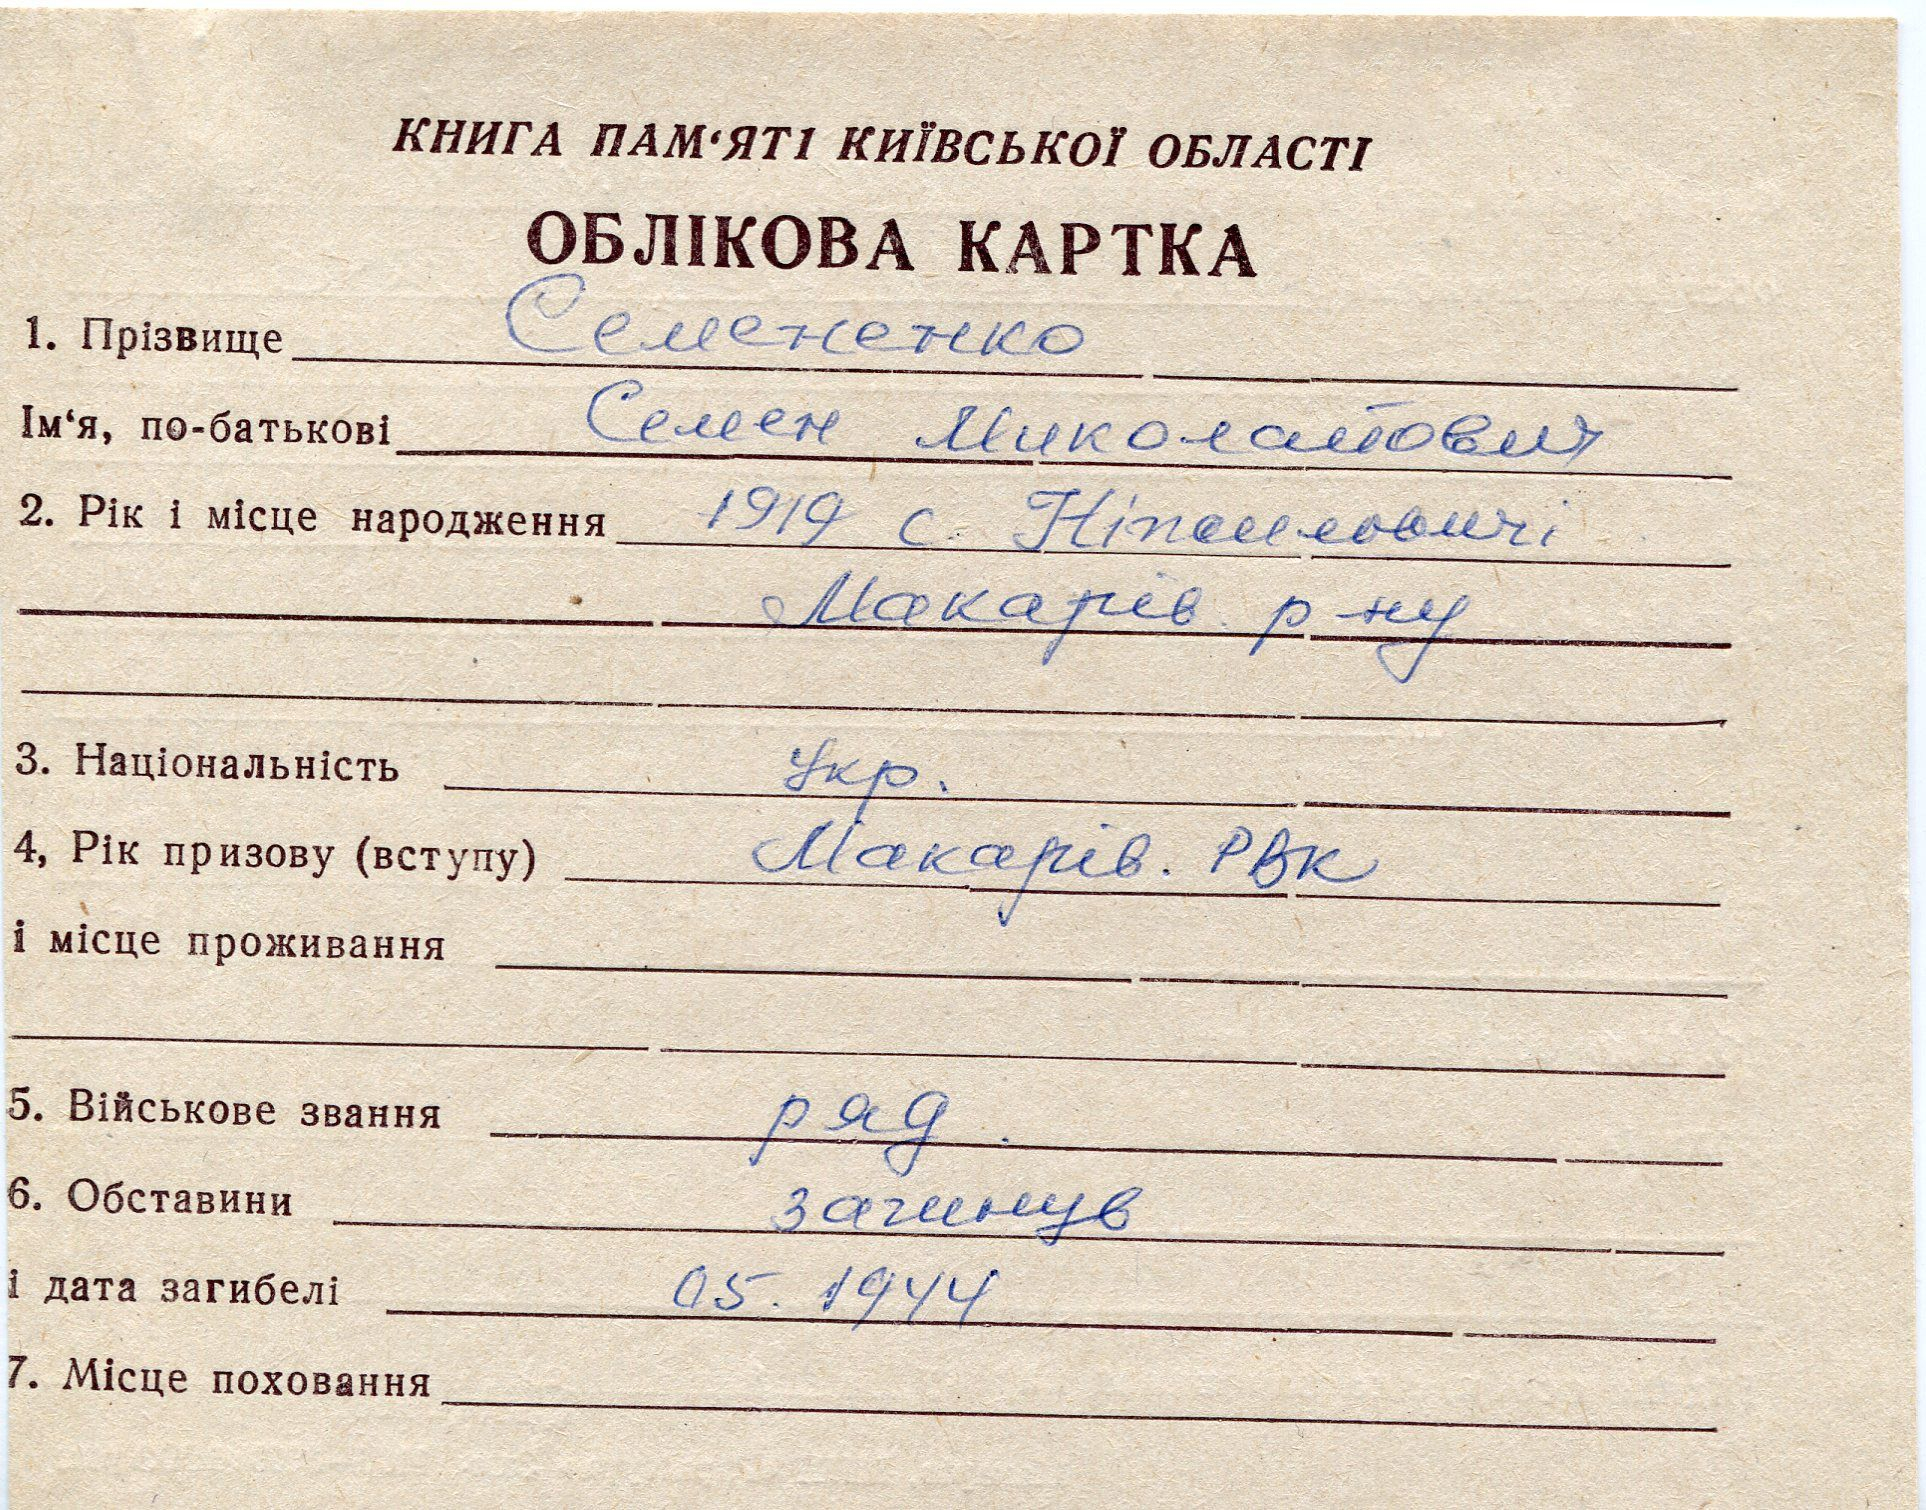 КНИГА ПАМ‘ЯТІ КИЇВСЬКОЇ ОБЛАСТІ
ОБЛІКОВА КАРТКА
1. Прізвище Семененко
Ім‘я, по-батькові Семен Миколайович
2. Рік і місце народження 1919 с. Ніпиловичі
Макарів. р-ну
3. Національність Укр.
4, Рік призову (вступу) Макарів. РВК
і місце проживання
5. Військове звання ряд.
6. Обставини загинув
і дата загибелі 05. 1944
7. Місце поховання